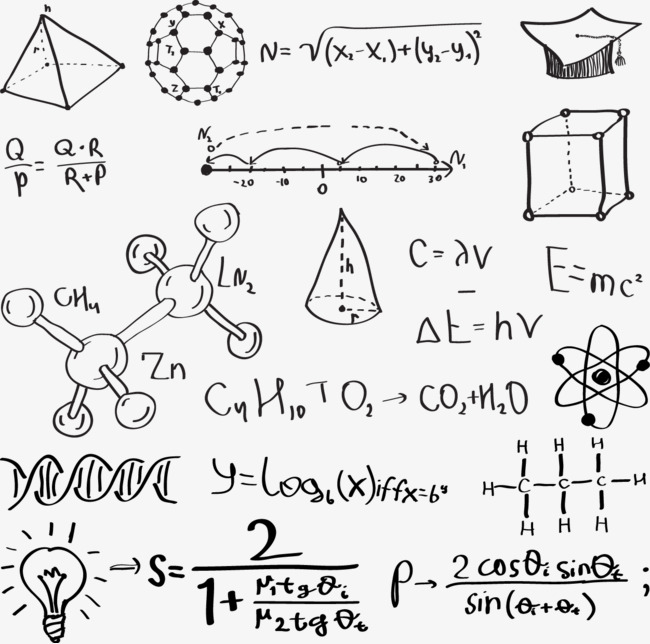 h
r
y x
T₃
Z T₁
N = √(x₂-x₁)+(y₂-y₁)²
Q/p = Q·R/R+P
N₂
0
N₁
-20 -10 0 10 20 30
LN₂
CH₄
Zn
h
r
C = λV
E=mc²
Δt = hV
C₄H₁₀TO₂→CO₂+H₂O
y=log₆(x)iffx=6ʸ
H H H
H-C-C-C-H
H H H
→ S= 2/1+ μ₁tgθᵢ/μ₂tgθₜ
ρ→ 2cosθᵢsinθₜ/sin(θᵢ+θₜ) ;